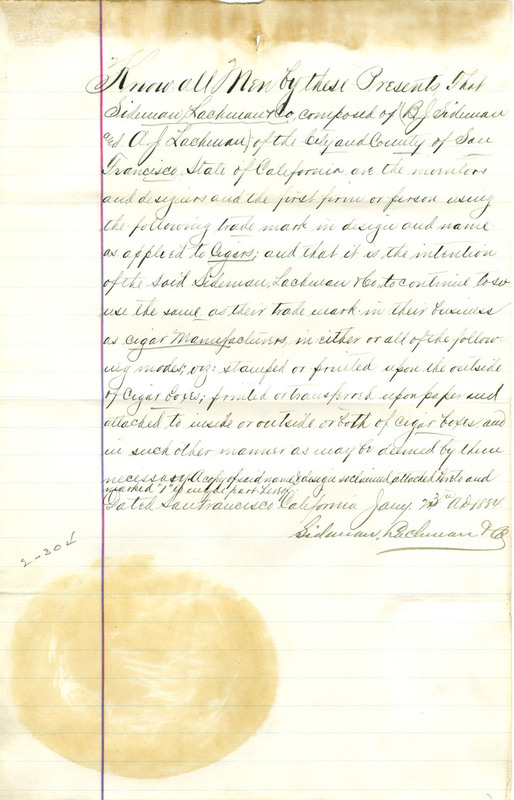 Know all Men by these Presents That
Sideman, Lachman & Co, composed of (B J Sideman
and A J Lachman) of the City and County of San
Francisco State of California are the inventors
and designers and the first firm or person using
the following trade mark in design and name
as applied to Cigars; and that it is the intention
of the said Sideman, Lachman & Co. to continue to so
use the same as their trade mark in their business
as cigar Manufacturers, in either or all of the follow-
ing modes; viz: stamped or printed upon the outside
of Cigar boxes; printed or transferred upon paper and
attached to inside or outside or both of cigar boxes, and
in such other manner as may be deemed by them
necessary. A copy of said name & design so claimed attached hereto and
marked "1" is made part hereof
Dated San Francisco California Jany. 23rd AD 1884
Sideman, Lachman & Co
2-304